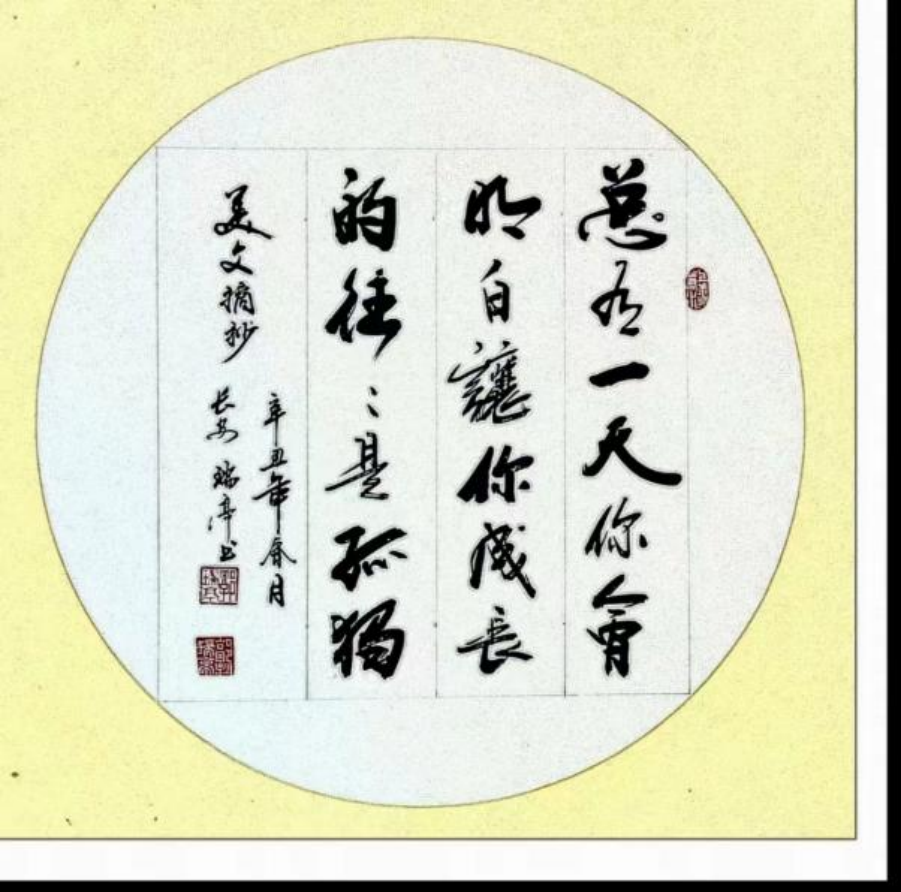 總有一天你會
明白讓你成長
的往〻是孤獨
美文摘抄
辛丑年春月
长安瑞亭书